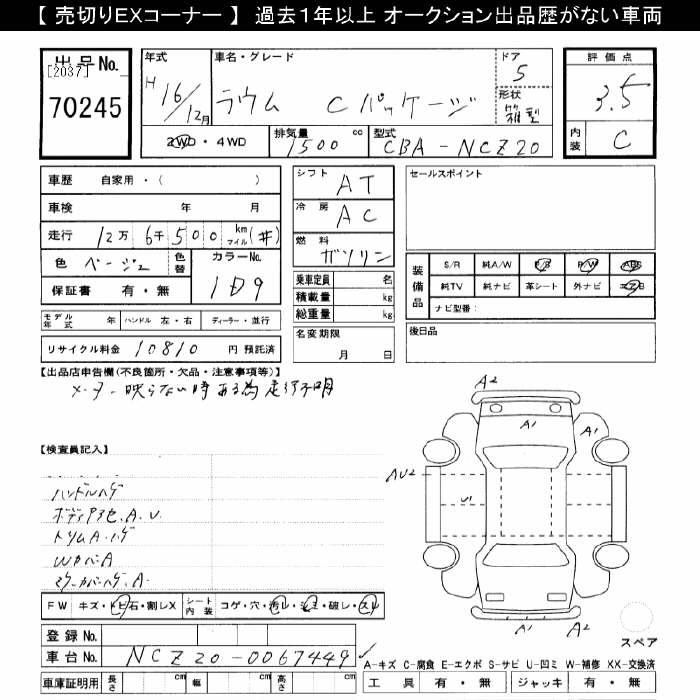 【 売切りEXコーナー 】 過去1年以上 オークション出品歴がない車両
出品No.
[2037]
70245
年式
H 16/12月
車名・グレード
ラウム Cパッケージ
ドア
5
形状
箱型
評価点
3.5
内装
C
2WD・4WD
排気量
1500 cc
型式
CBA-NCZ20
車歴 自家用・( )
車検 年 月
走行 12万 6千 500 km マイル (#)
色 ベージュ
色替
カラーNo.
1D9
保証書 有・無
モデル年式 年
ハンドル 左・右
ディーラー・並行
リサイクル料金 10810 円 預託済
シフト
AT
冷房
AC
燃料
ガソリン
乗車定員 名
積載量 kg
総重量 kg
名変期限
月 日
セールスポイント
装備品
S/R 純A/W P/S P/W ABS
純TV 純ナビ 革シート 外ナビ エアB
ナビ型番:
後日品
【出品店申告欄(不良箇所・欠品・注意事項等)】
メーター映らない時ある為 走行不明
【検査員記入】
ハンドルハゲ
トリムA.ハゲ
WカバーA
A2
A1
A1
AU2
U1
A1
A2
FW キズ・トビ石・割レX
シート内装 コゲ・穴・汚レ・シミ・破レ・スレ
登録 No.
車台 No. NCZ20-0067449
車庫証明用 長さ cm 幅 cm 高さ cm
スペア
A-キズ C-腐食 E-エクボ S-サビ U-凹ミ W-補修 XX-交換済
工具 有・無 ジャッキ 有・無